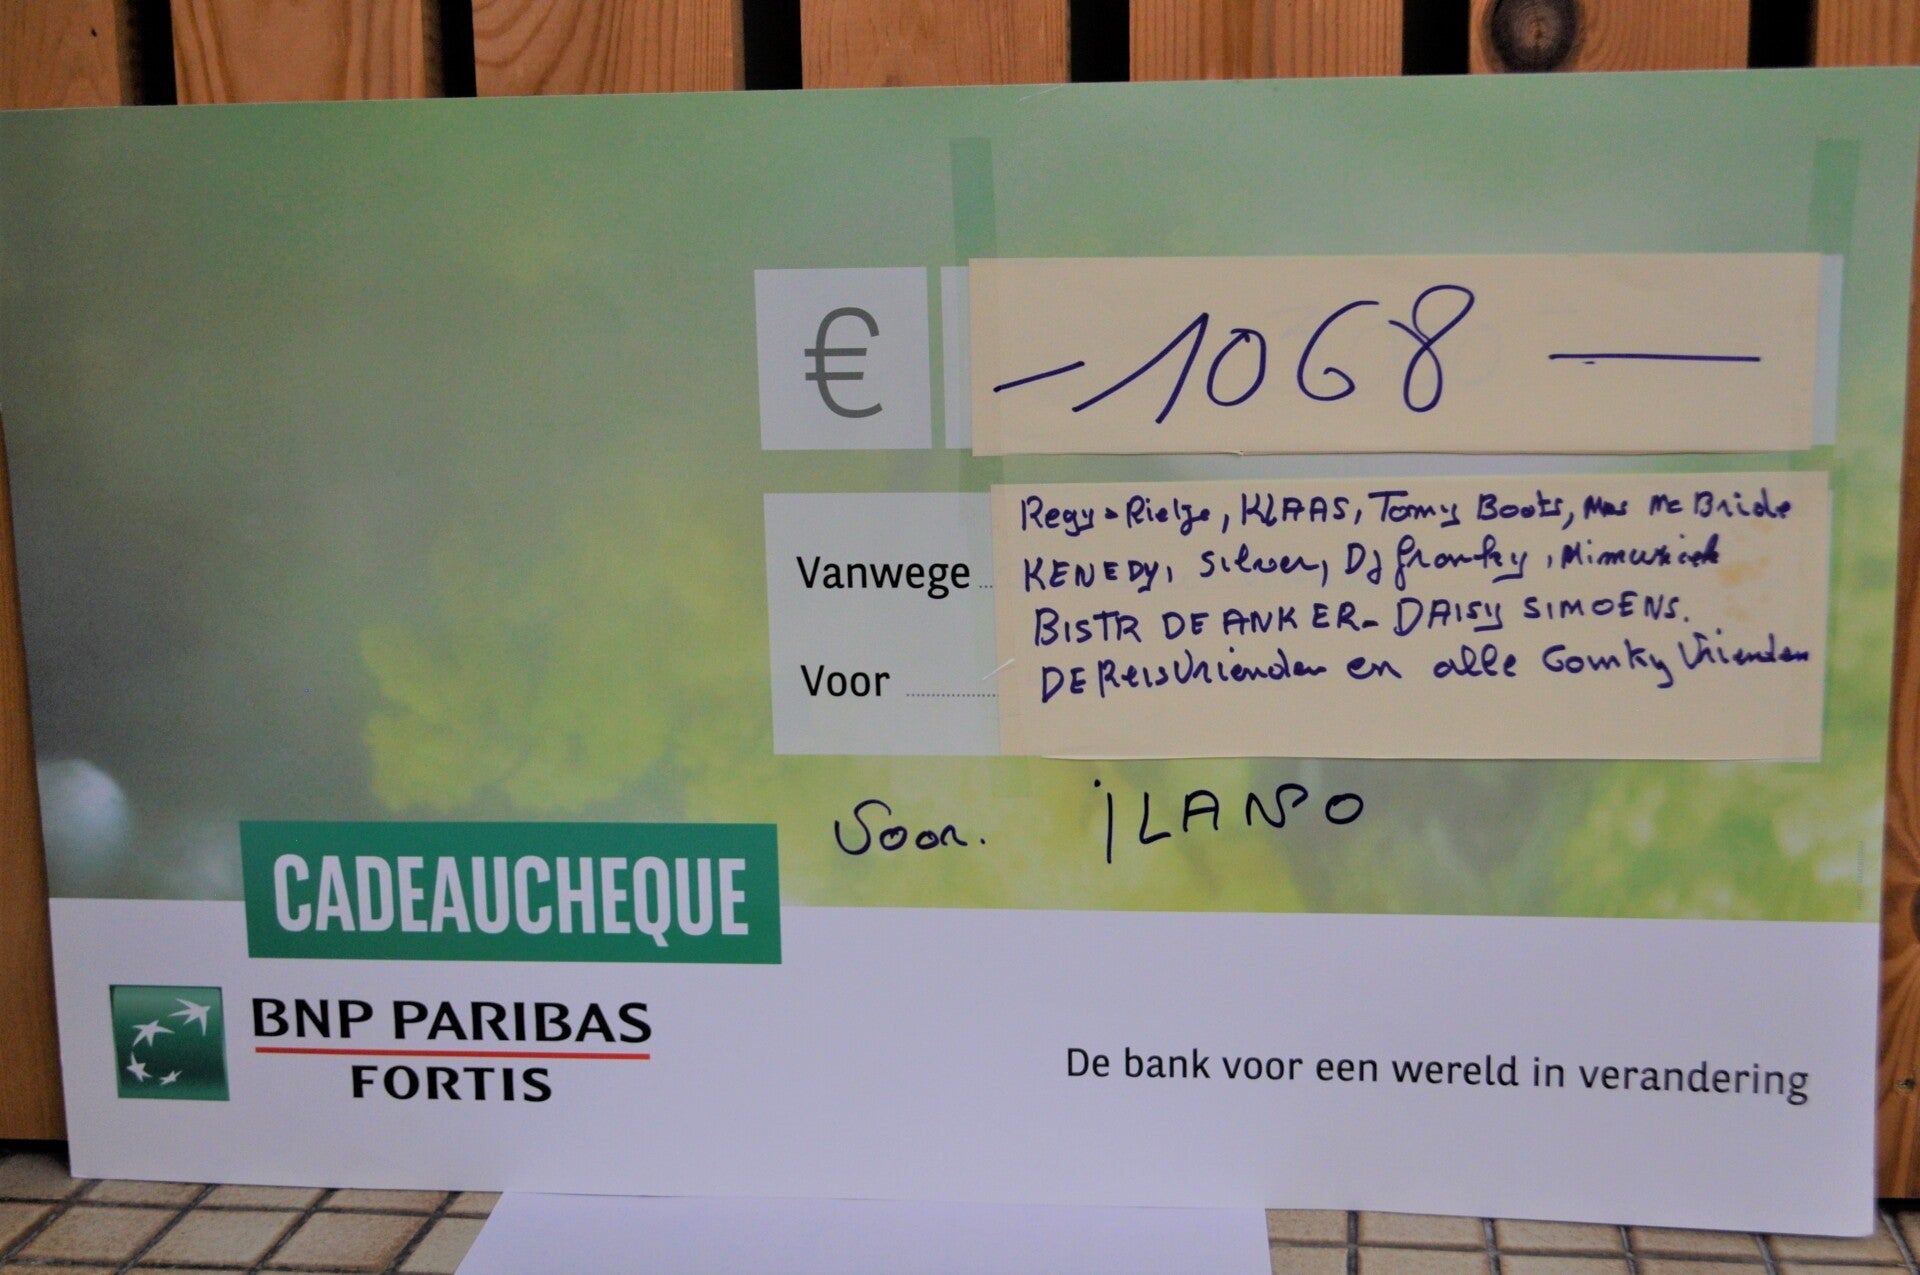 € - 1068 -
Regy + Rielje, KLAAS, Tomy Boots, Mrs Mc Bride
Vanwege KENEDY, Silver, Dj franky, Mimuziek
BISTR DE ANKER - DAISY SIMOENS.
Voor DE ReisVrienden en alle Comky Vrienden
Voor. iLANO
CADEAUCHEQUE
BNP PARIBAS
FORTIS
De bank voor een wereld in verandering